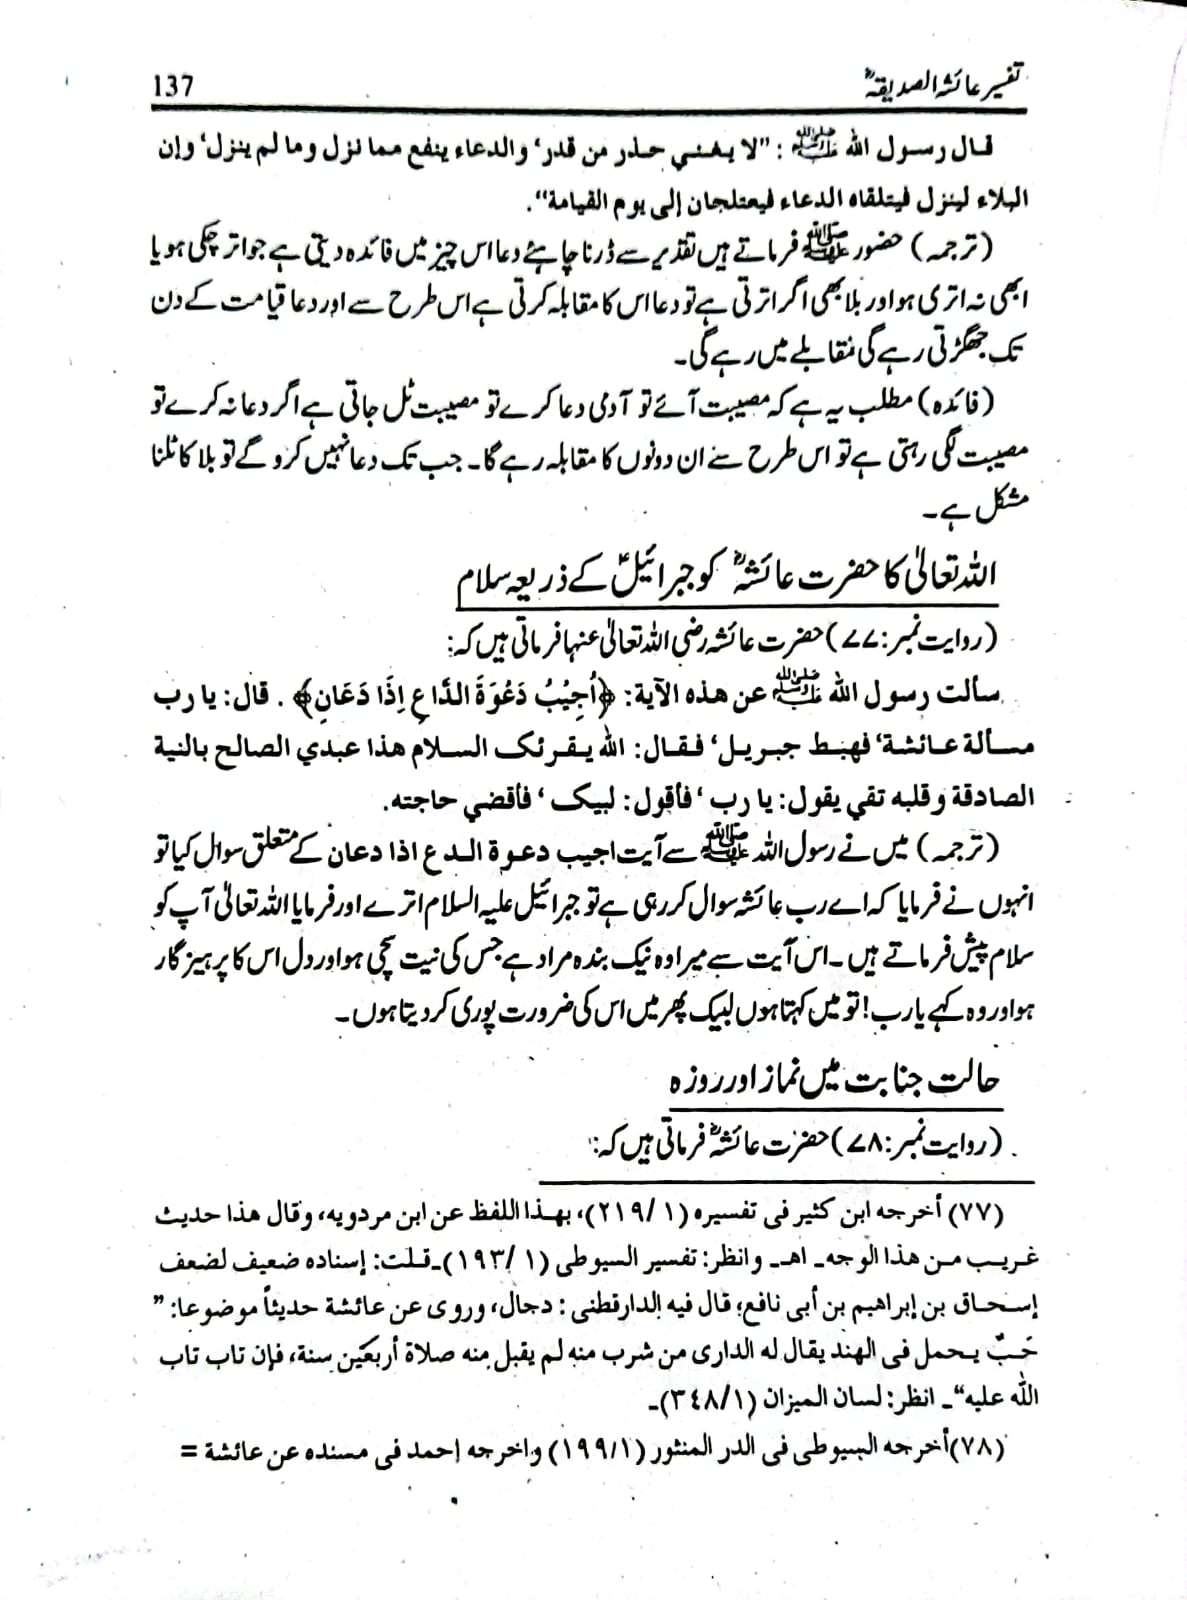 تفسیر عائشہ الصدیقہؓ 137
قال رسول الله ﷺ : "لا يغني حذر من قدر، والدعاء ينفع مما نزل وما لم ينزل، وإن
البلاء لينزل فيتلقاه الدعاء فيعتلجان إلى يوم القيامة".
(ترجمہ) حضور ﷺ فرماتے ہیں تقدیر سے ڈرنا چاہئے دعا اس چیز میں فائدہ دیتی ہے جو اتر چکی ہو یا
ابھی نہ اتری ہو اور بلا بھی اگر اترتی ہے تو دعا اس کا مقابلہ کرتی ہے اس طرح سے اور دعا قیامت کے دن
تک جھگڑتی رہے گی مقابلے میں رہے گی۔
(فائدہ) مطلب یہ ہے کہ مصیبت آئے تو آدمی دعا کرے تو مصیبت ٹل جاتی ہے اگر دعا نہ کرے تو
مصیبت لگی رہتی ہے تو اس طرح سے ان دونوں کا مقابلہ رہے گا۔ جب تک دعا نہیں کرو گے تو بلا کا ٹلنا
مشکل ہے۔
اللہ تعالیٰ کا حضرت عائشہؓ کو جبرائیلؑ کے ذریعہ سلام
(روایت نمبر:۷۷) حضرت عائشہ رضی اللہ تعالیٰ عنہا فرماتی ہیں کہ:
سألت رسول الله ﷺ عن هذه الآية: ﴿أُجِيْبُ دَعْوَةَ الدَّاعِ إِذَا دَعَانِ﴾ . قال: يا رب
مسألة عائشة، فهبط جبريل، فقال: الله يقرئک السلام هذا عبدي الصالح بالنية
الصادقة وقلبه تقي يقول: يا رب، فأقول: لبيک، فأقضي حاجته.
(ترجمہ) میں نے رسول اللہ ﷺ سے آیت اجیب دعوة الدع اذا دعان کے متعلق سوال کیا تو
انہوں نے فرمایا کہ اے رب عائشہ سوال کر رہی ہے تو جبرائیل علیہ السلام اترے اور فرمایا اللہ تعالیٰ آپ کو
سلام پیش فرماتے ہیں۔ اس آیت سے میرا وہ نیک بندہ مراد ہے جس کی نیت سچی ہو اور دل اس کا پرہیز گار
ہو اور وہ کہے یا رب! تو میں کہتا ہوں لبیک پھر میں اس کی ضرورت پوری کر دیتا ہوں۔
حالت جنابت میں نماز اور روزہ
(روایت نمبر:۷۸) حضرت عائشہؓ فرماتی ہیں کہ:
(۷۷) أخرجه ابن كثير فى تفسيره (۱/۲۱۹)، بهذا اللفظ عن ابن مردويه، وقال هذا حديث
غريب من هذا الوجه۔ اهـ۔ وانظر: تفسير السيوطى (۱/۱۹۳)۔ قلت: إسناده ضعيف لضعف
إسحاق بن إبراهيم بن أبى نافع، قال فيه الدارقطنى : دجال، وروى عن عائشة حديثاً موضوعا: "
حَبٌ يحمل فى الهند يقال له الدارى من شرب منه لم يقبل منه صلاة أربعين سنة، فإن تاب تاب
الله عليه"۔ انظر: لسان الميزان (۱/۳٤۸)۔
(۷۸) أخرجه السيوطى فى الدر المنثور (۱/۱۹۹) واخرجه احمد فى مسنده عن عائشة =